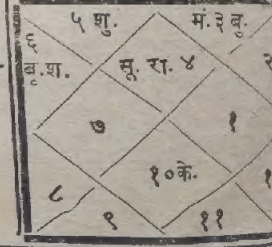 ५ शु. मं. ३ बु.
६
बृ. श. सू. रा. ४ २
७ १
१० के.
८ १
९ ११